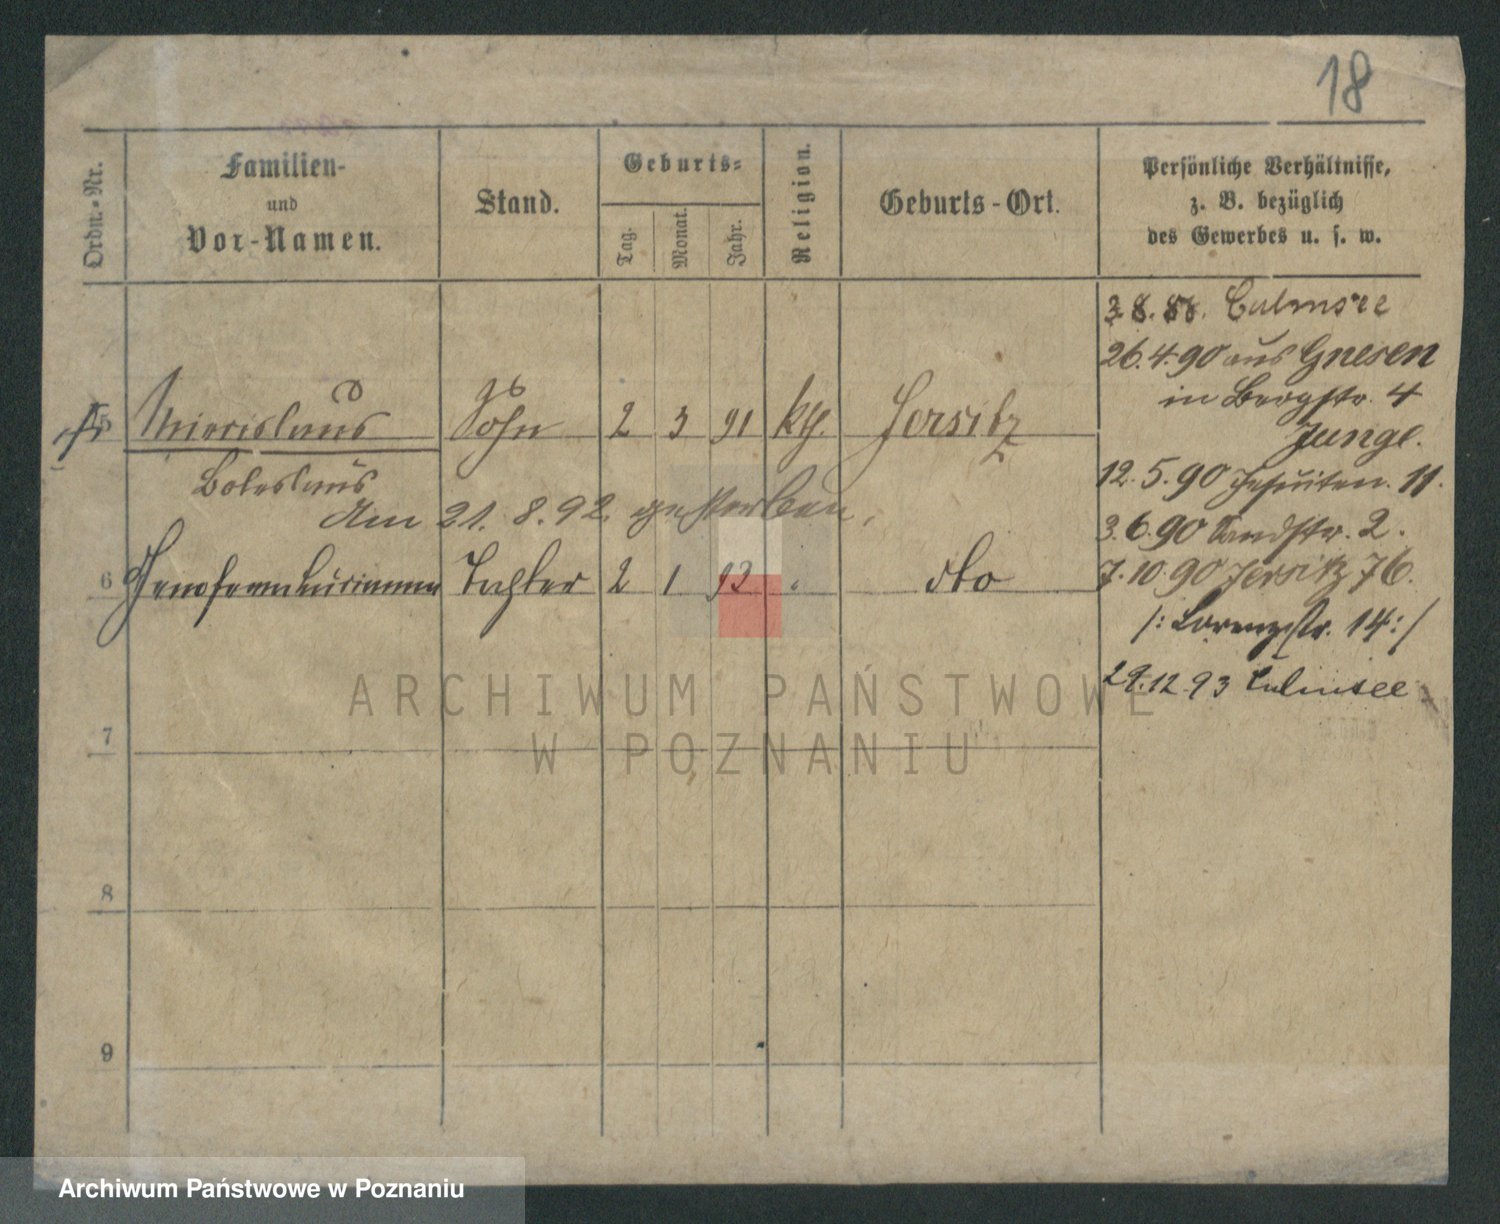 18
Ordn.-Nr.
Familien-
und
Vor-Namen.
Stand.
Geburts-
Tag.
Monat.
Jahr.
Religion.
Geburts-Ort.
Persönliche Verhältnisse,
z. B. bezüglich
des Gewerbes u. s. w.
3.8.88. Culmsee
26.4.90 aus Gnesen
in Bergstr. 4
Jungl.
5 Miecislaus Sohn 2 3 91 kth. Jersitz
Boleslaus
12.5.90 Jesuiten. 11.
Am 21.8.92 gestorben.
3.6.90 Sandstr. 2.
6 Tochter 2 1 93 dto
7.10.90 Jersitz 76.
/: Lorenzstr. 14 :/
29.12.93 Culmsee
7
8
9
ARCHIWUM PAŃSTWOWE
W POZNANIU
Archiwum Państwowe w Poznaniu